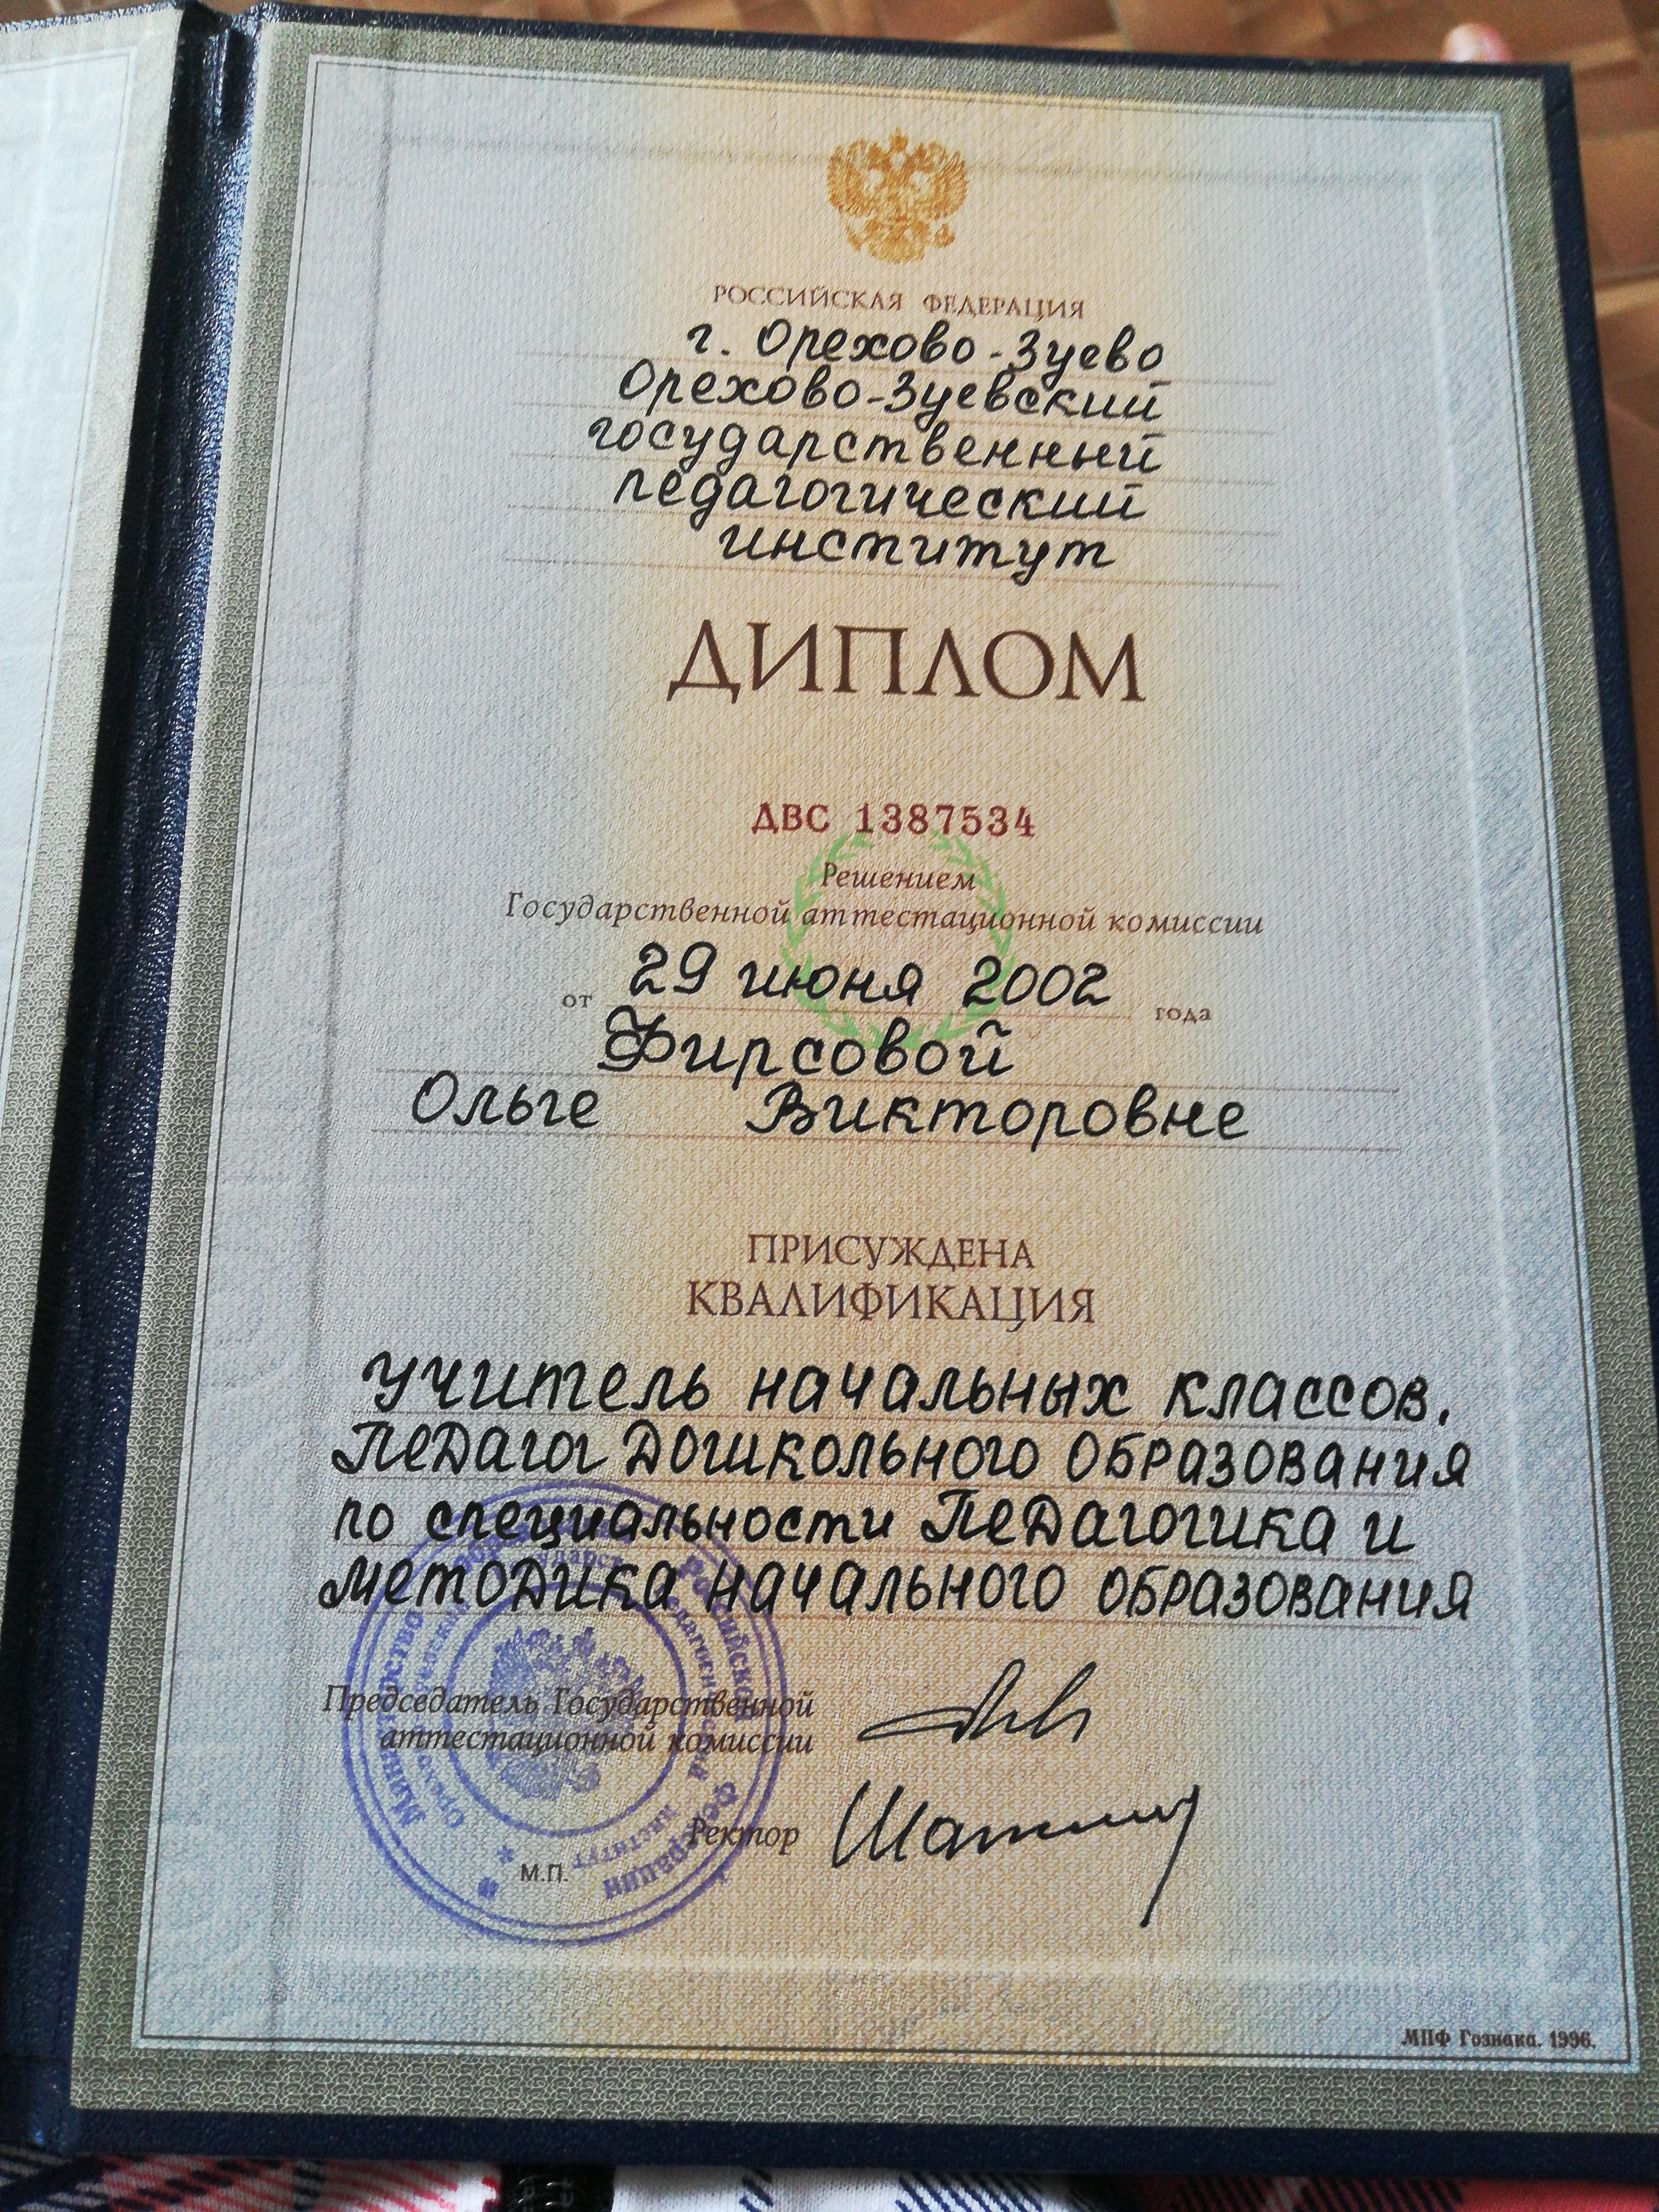 РОССИЙСКАЯ ФЕДЕРАЦИЯ
г. Орехово-Зуево
Орехово-Зуевский
государственный
педагогический
институт
ДИПЛОМ
ДВС 1387534
Решением
Государственной аттестационной комиссии
от 29 июня 2002 года
Фирсовой
Ольге Викторовне
ПРИСУЖДЕНА
КВАЛИФИКАЦИЯ
Учитель начальных классов.
Педагог дошкольного образования
по специальности Педагогика и
методика начального образования
Председатель Государственной
аттестационной комиссии
Ректор
М.П.
МПФ Гознака. 1996.